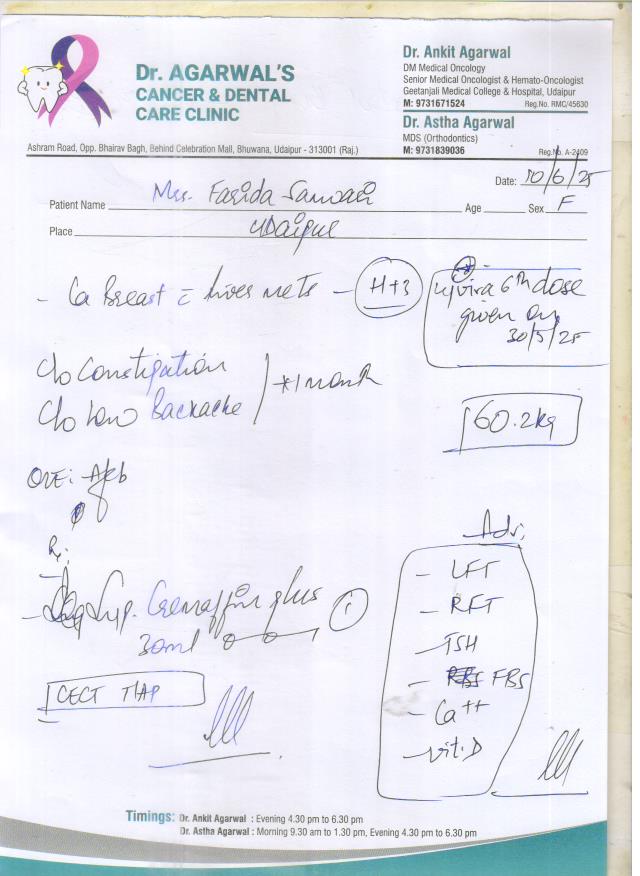 Dr. AGARWAL'S
CANCER & DENTAL
CARE CLINIC
Dr. Ankit Agarwal
DM Medical Oncology
Senior Medical Oncologist & Hemato-Oncologist
Geetanjali Medical College & Hospital, Udaipur
M: 9731671524 Reg.No. RMC/45630
Dr. Astha Agarwal
MDS (Orthodontics)
M: 9731839036 Reg.No. A-2409
Ashram Road, Opp. Bhairav Bagh, Behind Celebration Mall, Bhuwana, Udaipur - 313001 (Raj.)
Date: 10/6/25
Patient Name Mrs. Farida Age Sex F
Place Udaipur
- Ca Breast c̄ liver mets - H+3
6th dose
given on
30/5/25
c/o Constipation
c/o low Backache *1 month
60.2kg
O/E: Afeb
Rx
- Syp. Cremaffin plus
30ml 0 - 0 - 1
CECT T/AP
Adv:
- LFT
- RFT
- TSH
- FBS
- Ca++
- Vit. D
Timings: Dr. Ankit Agarwal : Evening 4.30 pm to 6.30 pm
Dr. Astha Agarwal : Morning 9.30 am to 1.30 pm, Evening 4.30 pm to 6.30 pm